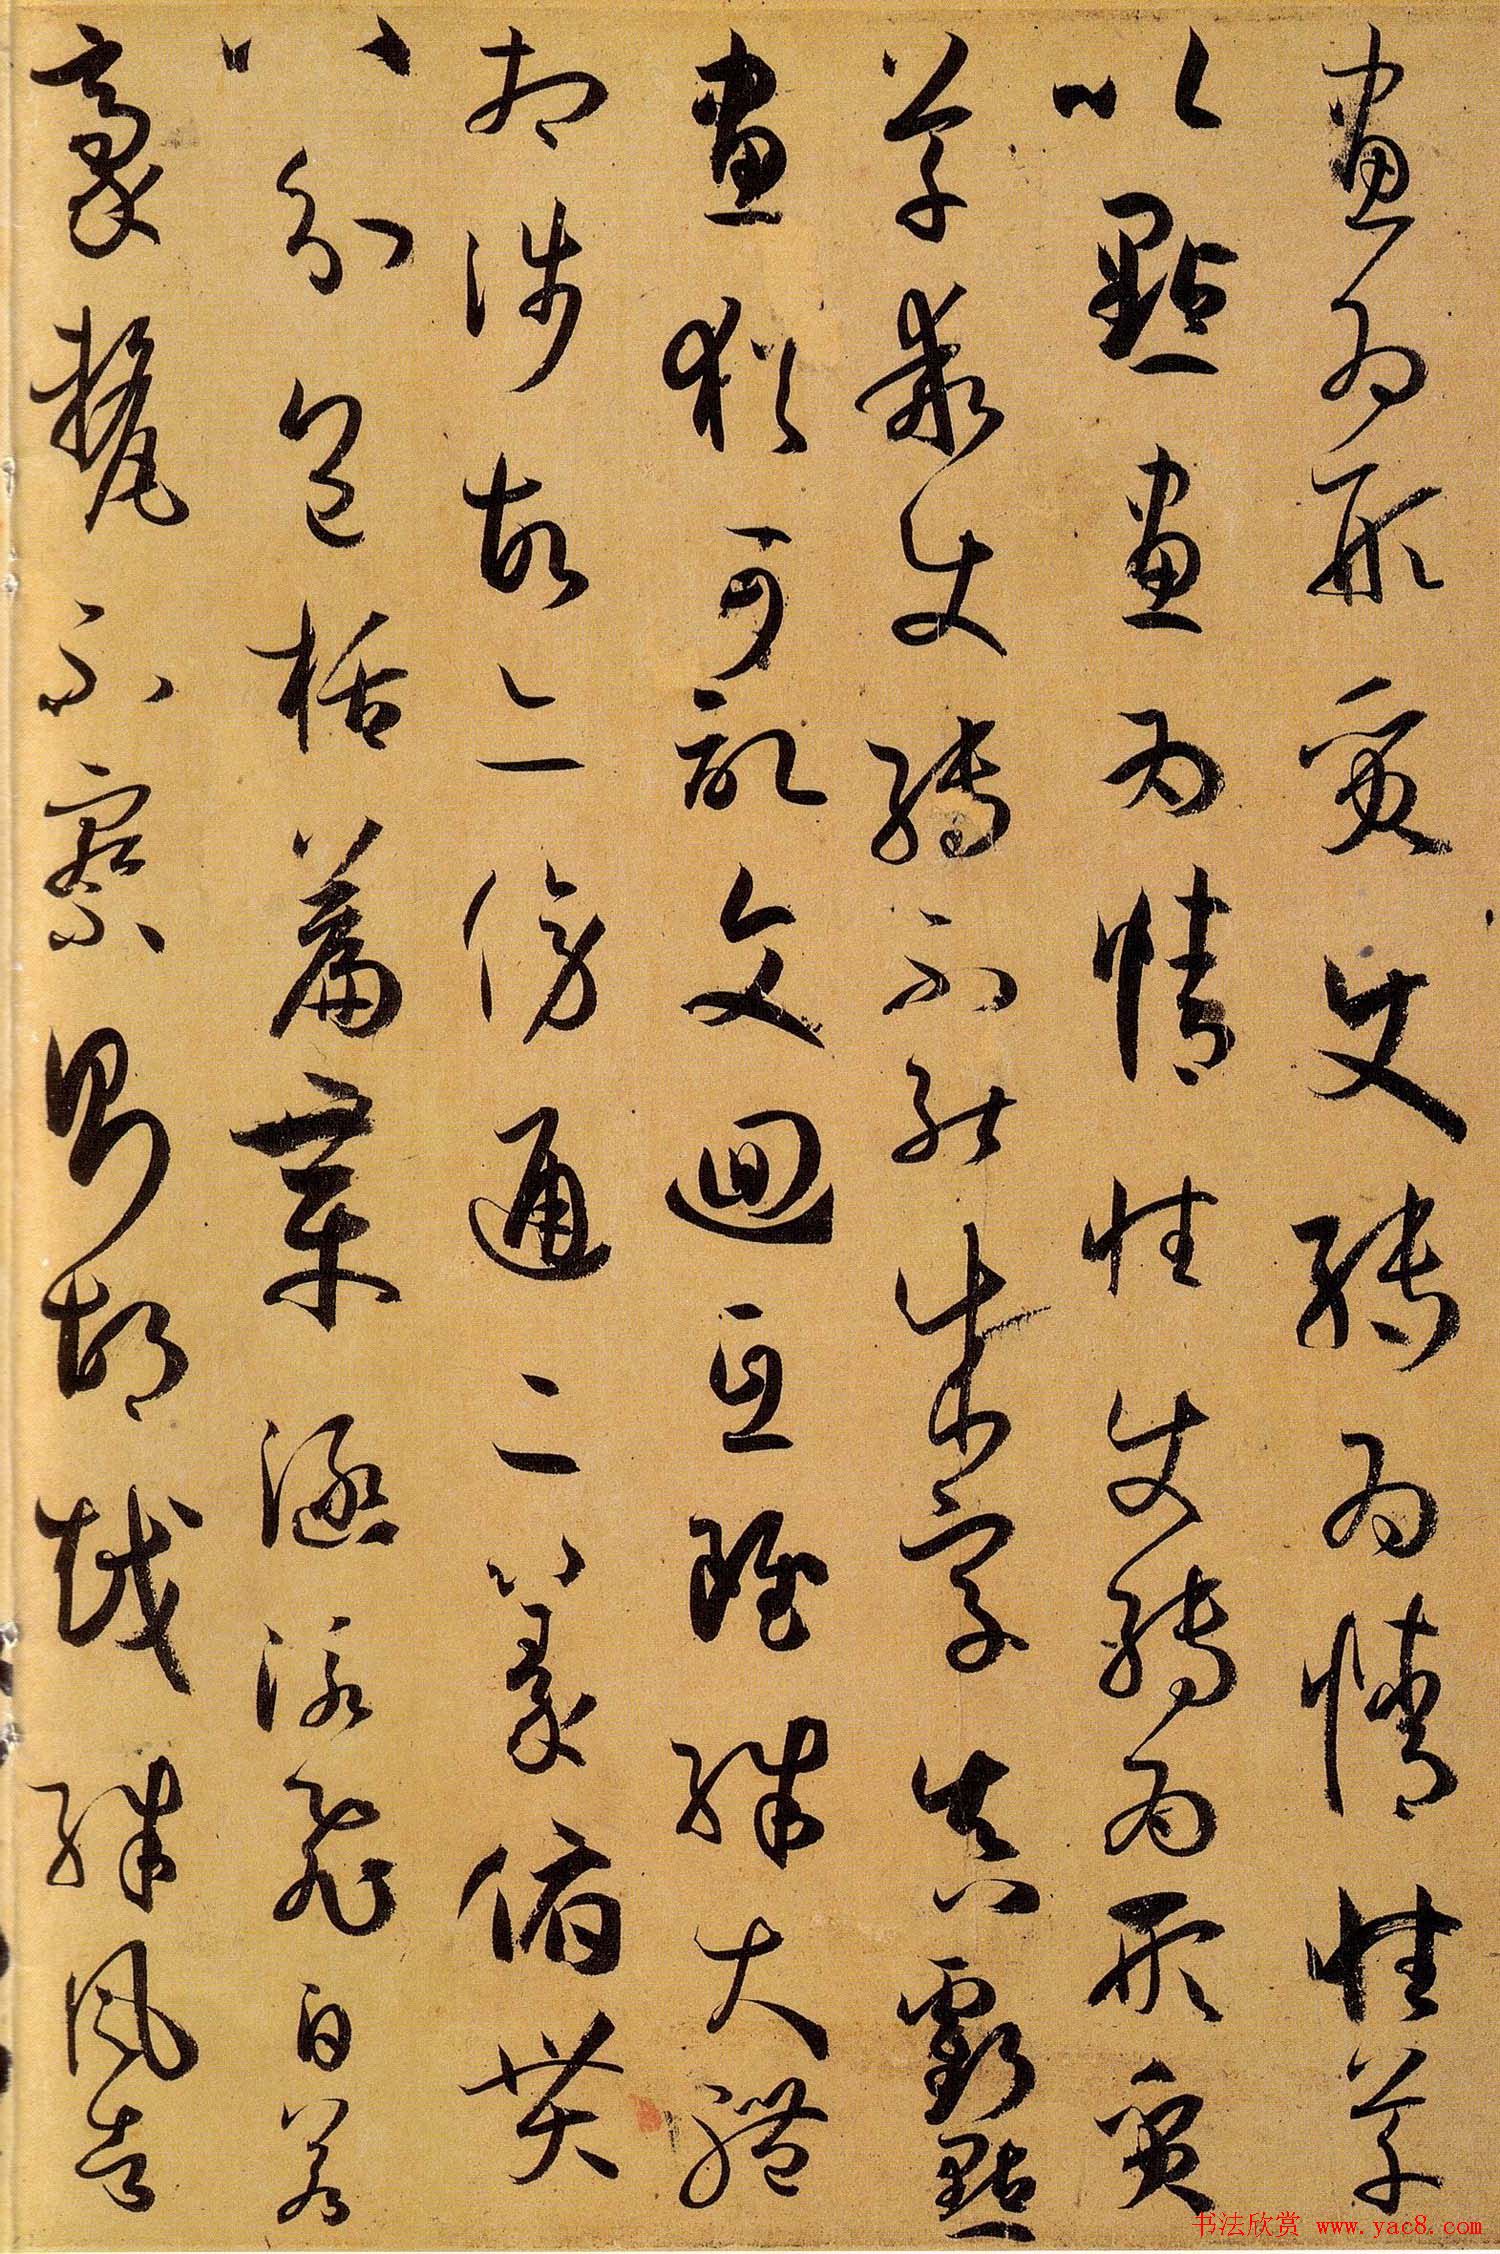 畫為形質使轉為情性草
以點畫為情性使轉為形質
草乖使轉不能成字真虧點
畫猶可記文迴互雖殊大體
相涉故亦傍通二篆俯貫
八分包括篇章涵泳飛白若
豪釐不察則胡越殊風者
书法欣赏 www.yac8.com